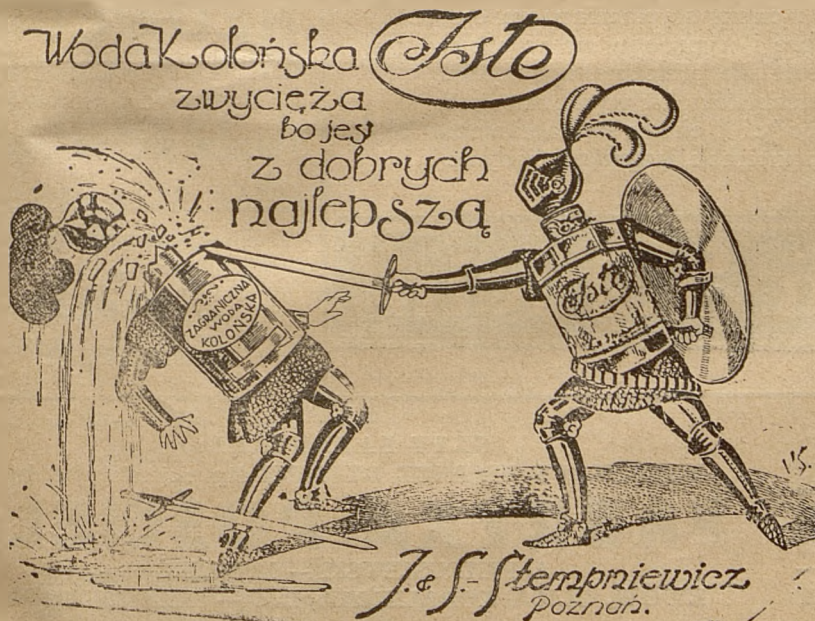 Woda Kolońska Iste
zwycięża
bo jest
z dobrych
najlepszą
ZAGRANICZNA
WODA
KOLOŃSKA
Iste
J. & S. Stempniewicz
Poznań.